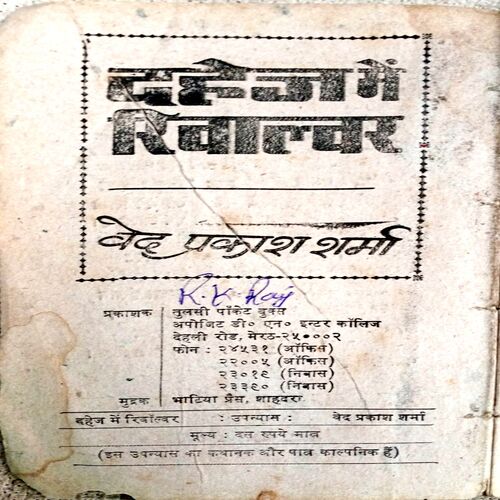 दहेज में
रिवाल्वर
वेद प्रकाश शर्मा
R.K. Raj
प्रकाशक : तुलसी पॉकेट बुक्स
अपोजिट डी० एन० इन्टर कॉलिज
देहली रोड, मेरठ-२५०००२
फोन : २४५३१ (ऑफिस)
२२००५ (ऑफिस)
२३०१९ (निवास)
२३३९० (निवास)
मुद्रक : भाटिया प्रैस, शाहदरा
दहेज में रिवॉल्वर : उपन्यास : वेद प्रकाश शर्मा
मूल्य : दस रुपये मात्र
(इस उपन्यास का कथानक और पात्र काल्पनिक हैं)